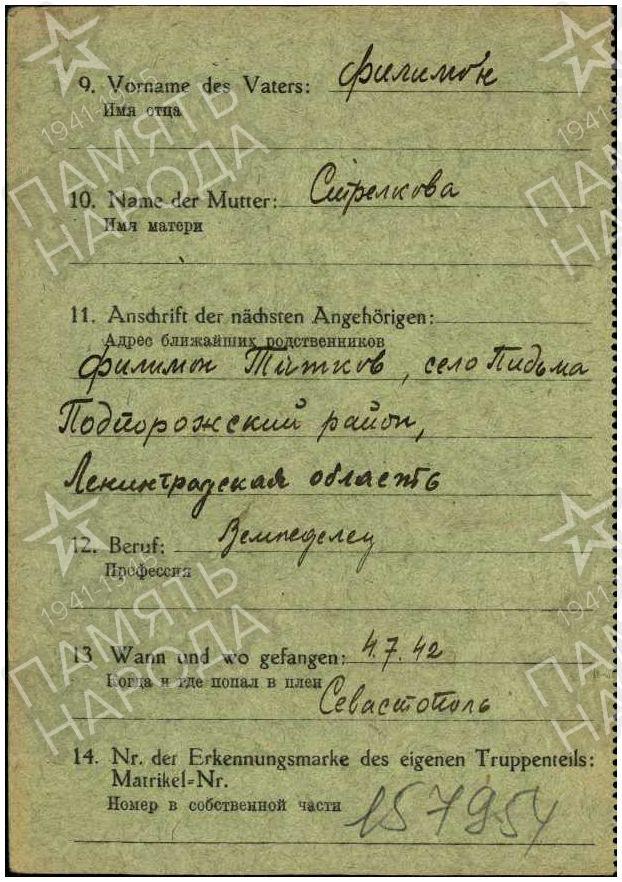 9. Vorname des Vaters: Филимон
Имя отца
10. Name der Mutter: Стрелкова
Имя матери
11. Anschrift der nächsten Angehörigen:
Адрес ближайших родственников
Филимон Титков, село Пидьма
Подпорожский район,
Ленинградская область
12. Beruf: Земледелец
Профессия
13 Wann und wo gefangen: 4.7.42
Когда и где попал в плен
Севастополь
14. Nr. der Erkennungsmarke des eigenen Truppenteils:
Matrikel=Nr.
Номер в собственной части 157954
1941-1945
ПАМЯТЬ
НАРОДА